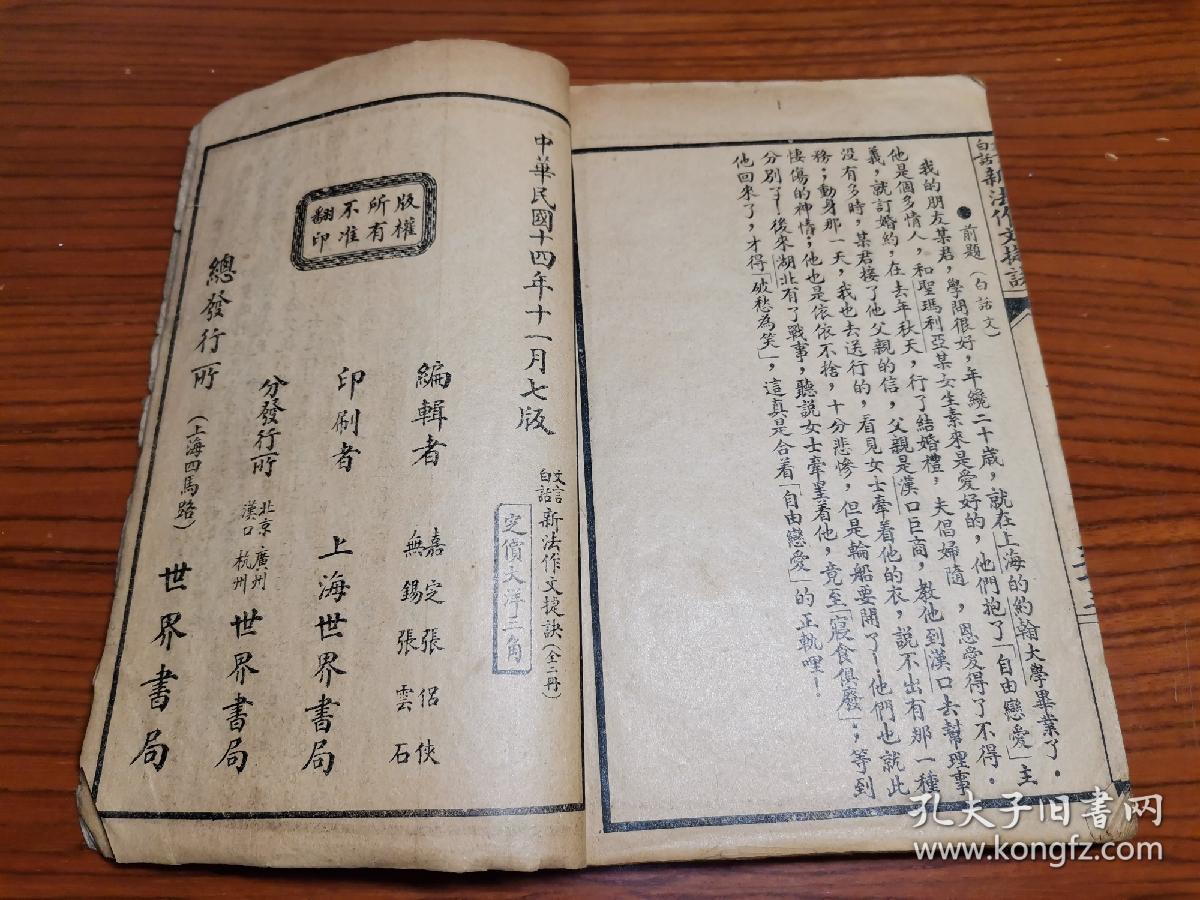 白話新法作文捷訣
●前題(白話文)
我的朋友某君,學問很好,年纔二十歲,就在上海的約翰大學畢業了.
他是個多情人,和聖瑪利亞某女生素來是愛好的,他們抱了「自由戀愛」主
義,就訂婚約,在去年秋天,行了結婚禮,夫倡婦隨,恩愛得了不得.
沒有多時,某君接了他父親的信,父親是漢口巨商,教他到漢口去幫理事
務;動身那一天,我也去送行的,看見女士牽着他的衣,說不出有那一種
悽傷的神情;他也是依依不捨,十分悲慘,但是輪船要開了!他們也就此
分別了!後來湖北有了戰事,聽說女士牽罣着他,竟至「寢食俱廢」;等到
他回來了,才得「破愁為笑」,這真是合着「自由戀愛」的正軌哩!
中華民國十四年十一月七版
文言白話新法作文捷訣(全二冊)
定價大洋三角
編輯者 嘉定張侶俠
無錫張雲石
印刷者 上海世界書局
分發行所 北京 廣州 漢口 杭州 世界書局
總發行所(上海四馬路)世界書局
版權
所有
不准
翻印
孔夫子旧书网
www.kongfz.com